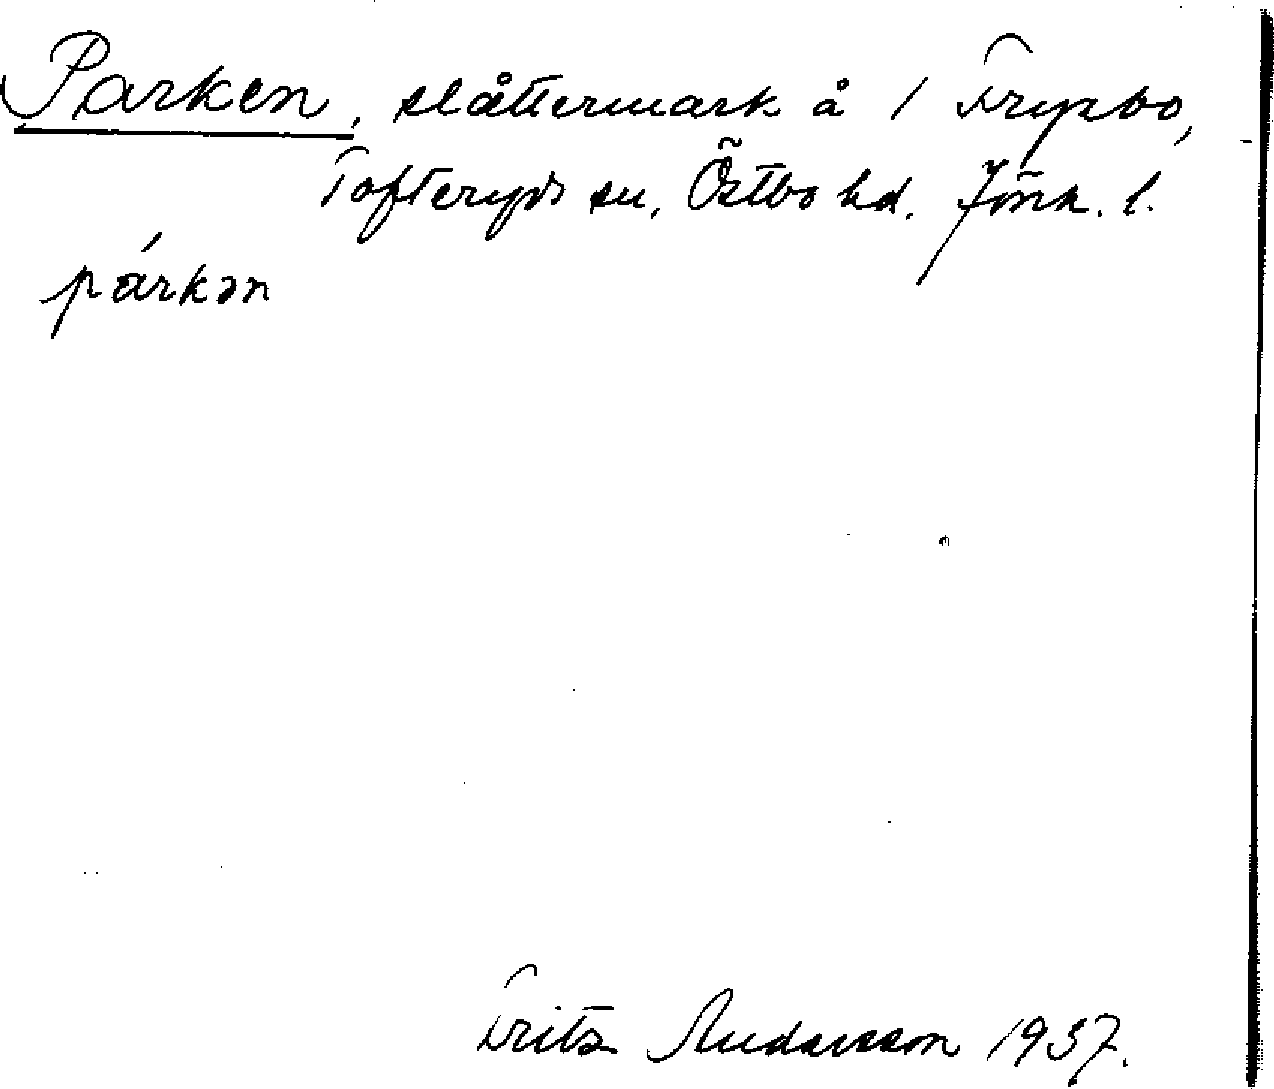 Parken, slåttermark å 1 Frysbo,
Tofteryds sn, Östbo hd. Jönk. l.
párkən
Fritz Andersson 1937.